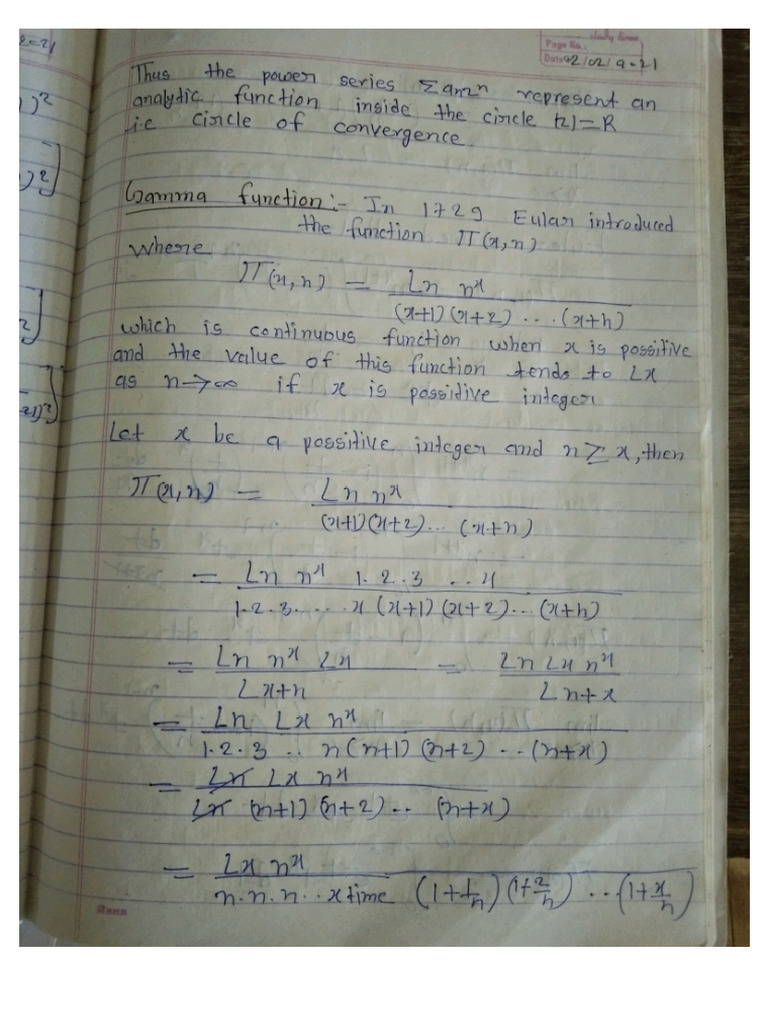 Page No.
Date 02/02/2021
Thus the power series Σaₙzⁿ represent an
analytic function inside the circle |z|=R
i.e circle of convergence.
Gamma function:- In 1729 Eular introduced
the function π(x,n)
where
π(x,n) = Ln nˣ / (x+1)(x+2)...(x+n)
which is continuous function when x is possitive
and the value of this function tends to Lx
as n→∞ if x is possidive integer
Let x be a possitive integer and n ≥ x, then
π(x,n) = Ln nˣ / (x+1)(x+2)... (x+n)
= Ln nˣ 1.2.3 ..x / 1.2.3.... x (x+1)(x+2)...(x+n)
= Ln nˣ Lx / Lx+n = Ln Lx nˣ / Ln+x
= Ln Lx nˣ / 1.2.3 .. n(n+1)(n+2)...(n+x)
= Ln Lx nˣ / Ln (n+1)(n+2).. (n+x)
= Lx nˣ / n.n.n...x time (1+1/n)(1+2/n)...(1+x/n)